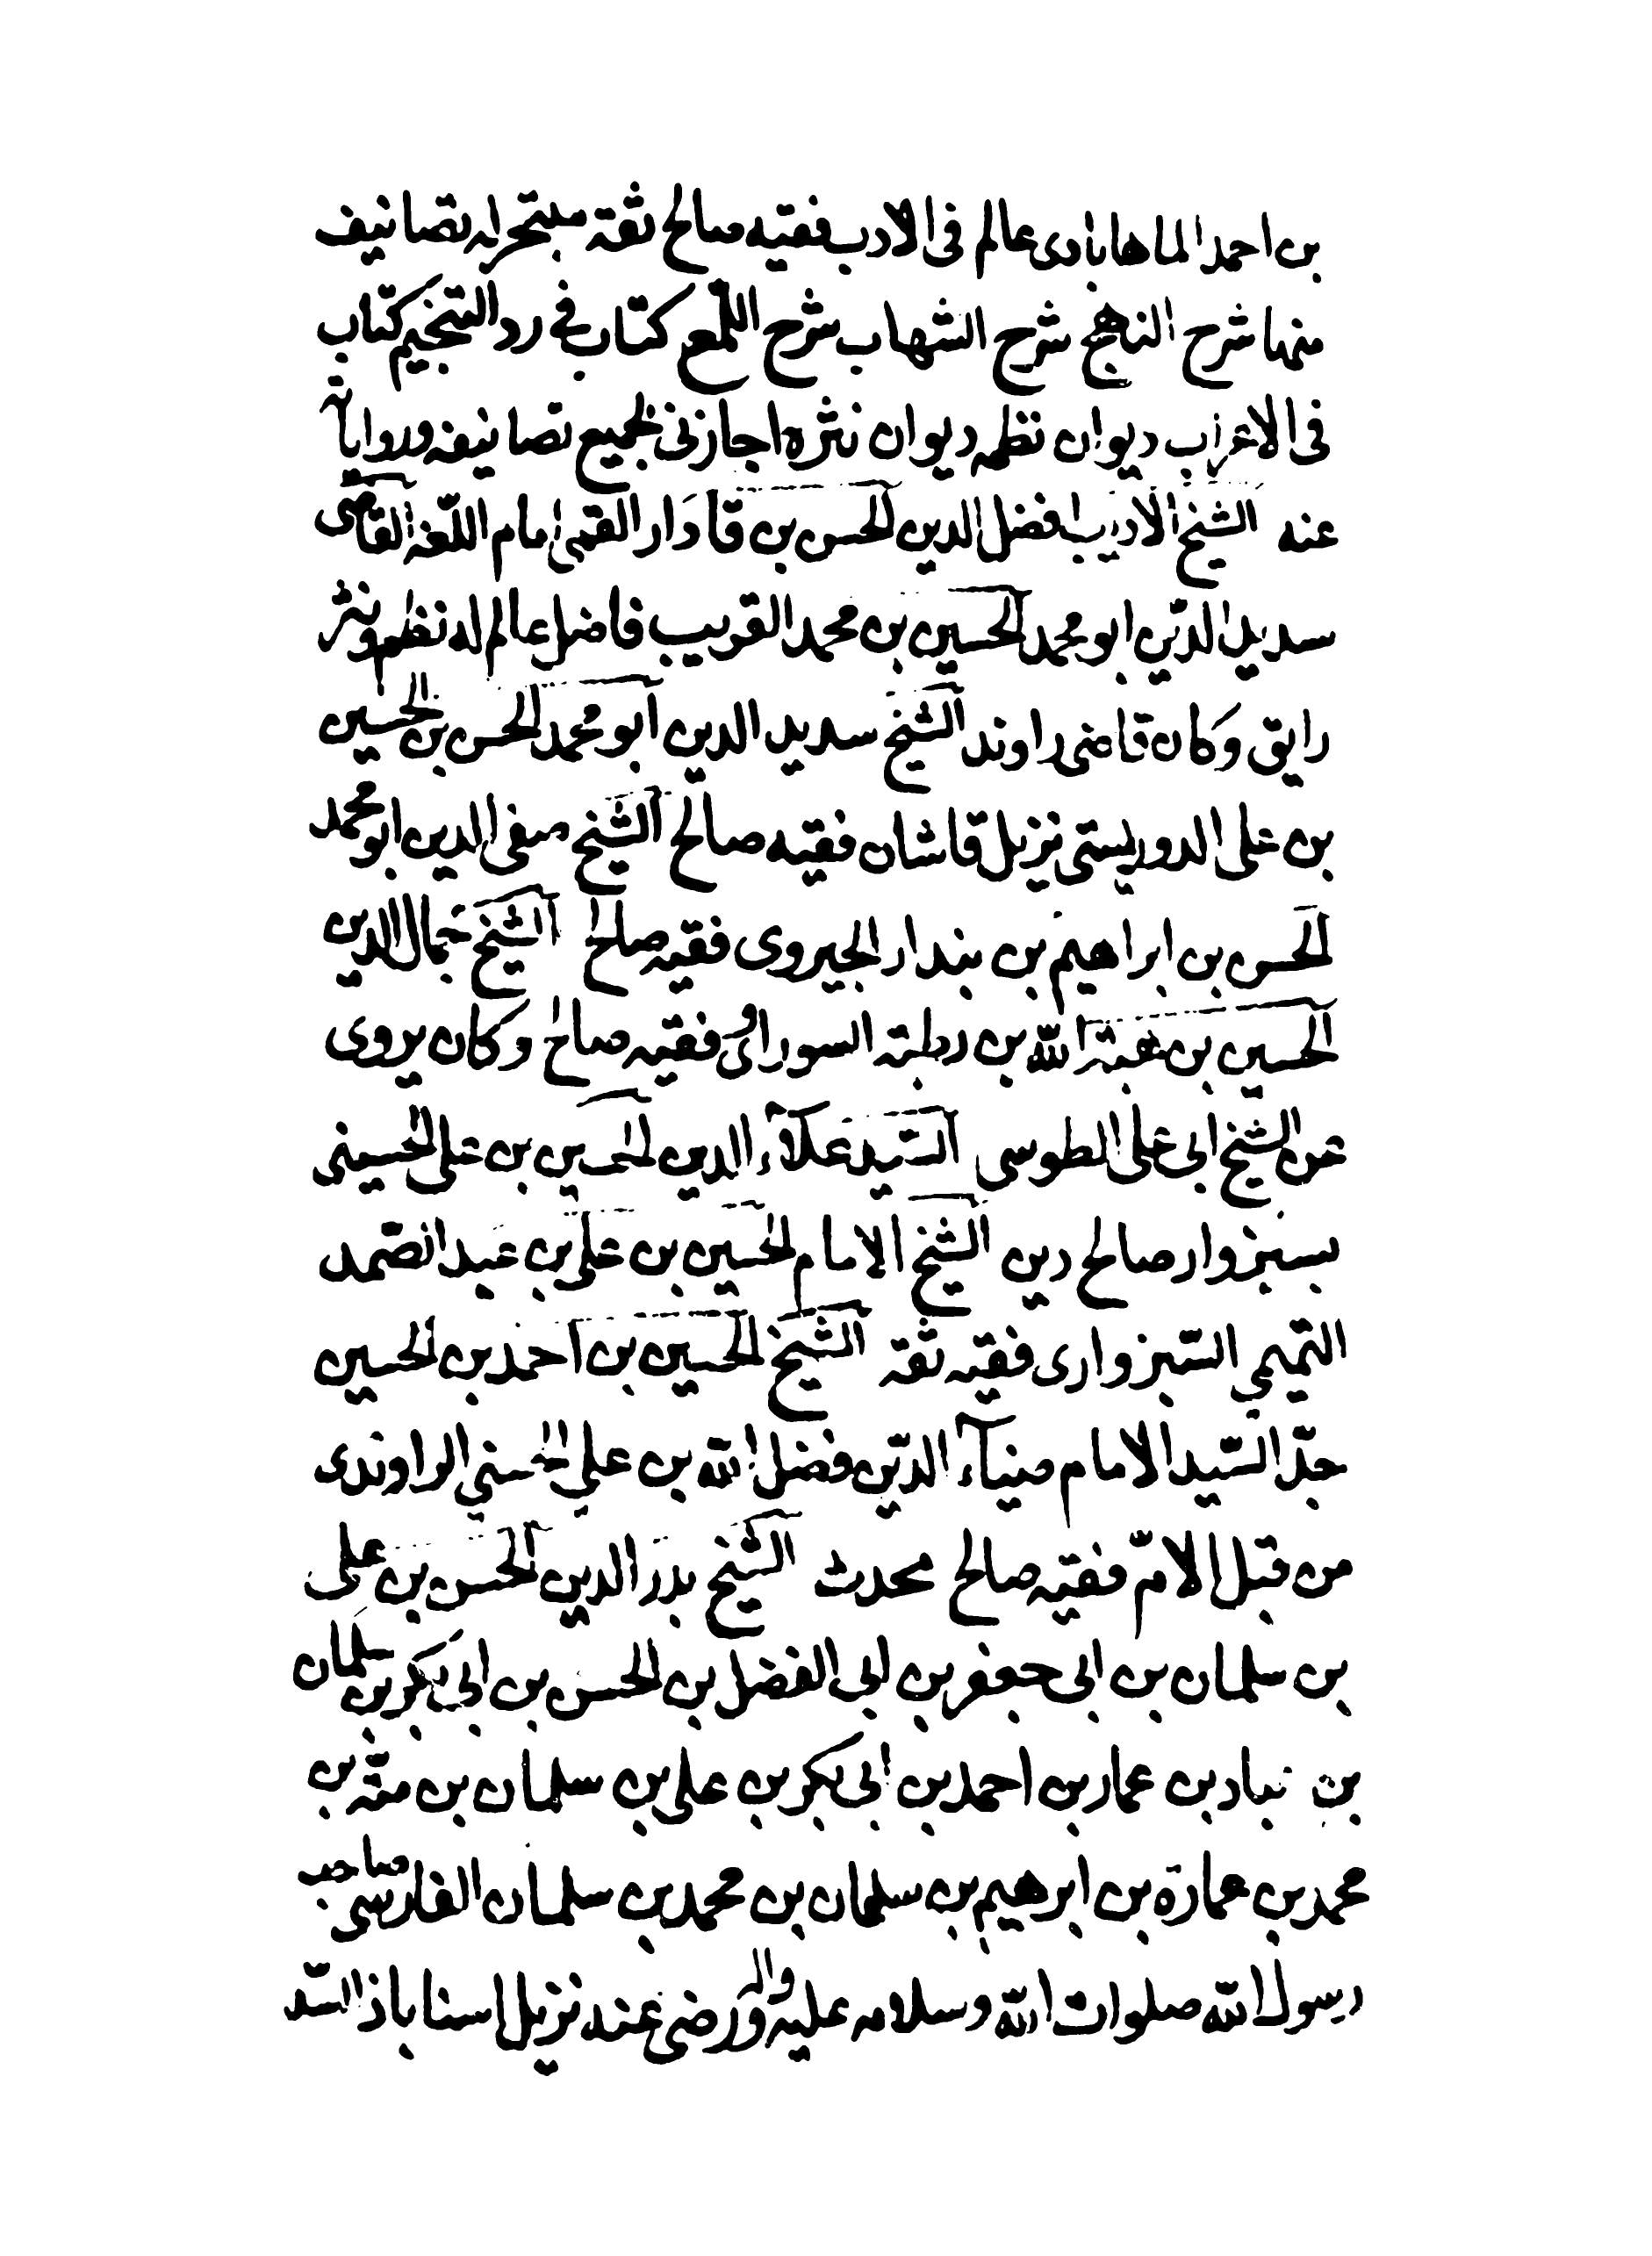 بن احمد الماهابادى عالم فى الادب فقيه صالح ثقة متبحر له تصانيف
منها شرح النهج شرح الشهاب شرح اللمع كتاب في رد التنجيم كتاب
فى الاعراب ديوان نظمه ديوان نثره اجازنى بجميع تصانيفه ورواياته
عنه الشيخ الاديب افضل الدين الحسن بن فادار القمى امام اللغة القاضى
سديد الدين ابو محمد الحسين بن محمد القريب فاضل عالم له نظم ونثر
رايق وكان قاضى راوند الشيخ سديد الدين ابو محمد الحسن بن الحسين
بن على الدوريستى نزيل قاشان فقيه صالح الشيخ صفى الدين ابو محمد
الحسن بن ابراهيم بن بندار الجيروى فقيه صالح الشيخ جمال الدين
الحسين بن هبة الله بن رطبة السوراوى فقيه صالح وكان يروى
عن الشيخ ابى على الطوسى السيد علاء الدين الحسين بن على الحسينى
بسبزوار صالح دين الشيخ الامام الحسين بن على بن عبد الصمد
التميمي السبزوارى فقيه ثقة الشيخ الحسين بن احمد بن الحسين
جدّ السيد الامام ضياء الدين فضل الله بن علي الحسني الراوندى
من قبل الامّ فقيه صالح محدث الشيخ بدر الدين الحسن بن على
بن سلمان بن ابى جعفر بن ابى الفضل بن الحسن بن ابى بكر بن سلمان
بن عباد بن عمار بن احمد بن ابى بكر بن على بن سلمان بن منبه بن
محمد بن عمارة بن ابرهيم بن سلمان بن محمد بن سلمان الفارسى صاحب
رسول الله صلوات الله وسلامه عليه واله ورضى عنه نزيل اسناباذ السد